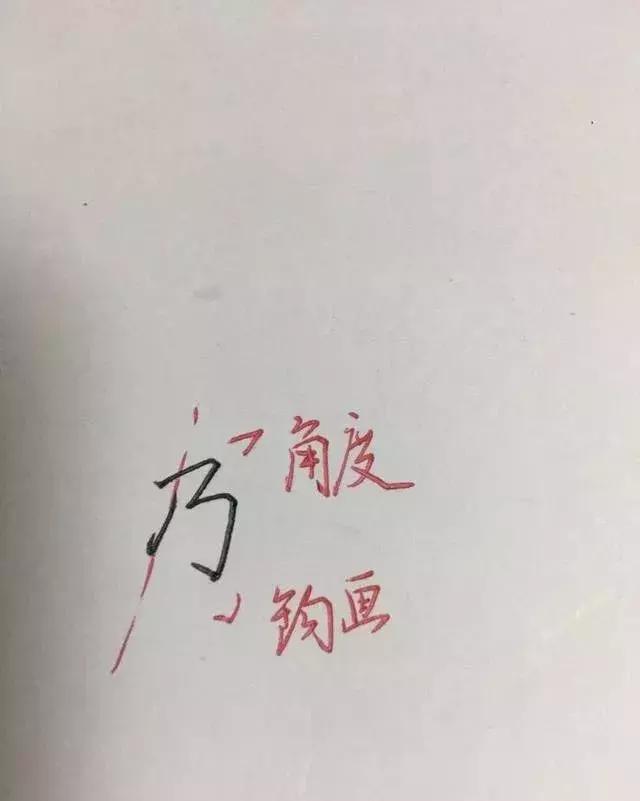 角度
丂
钩画